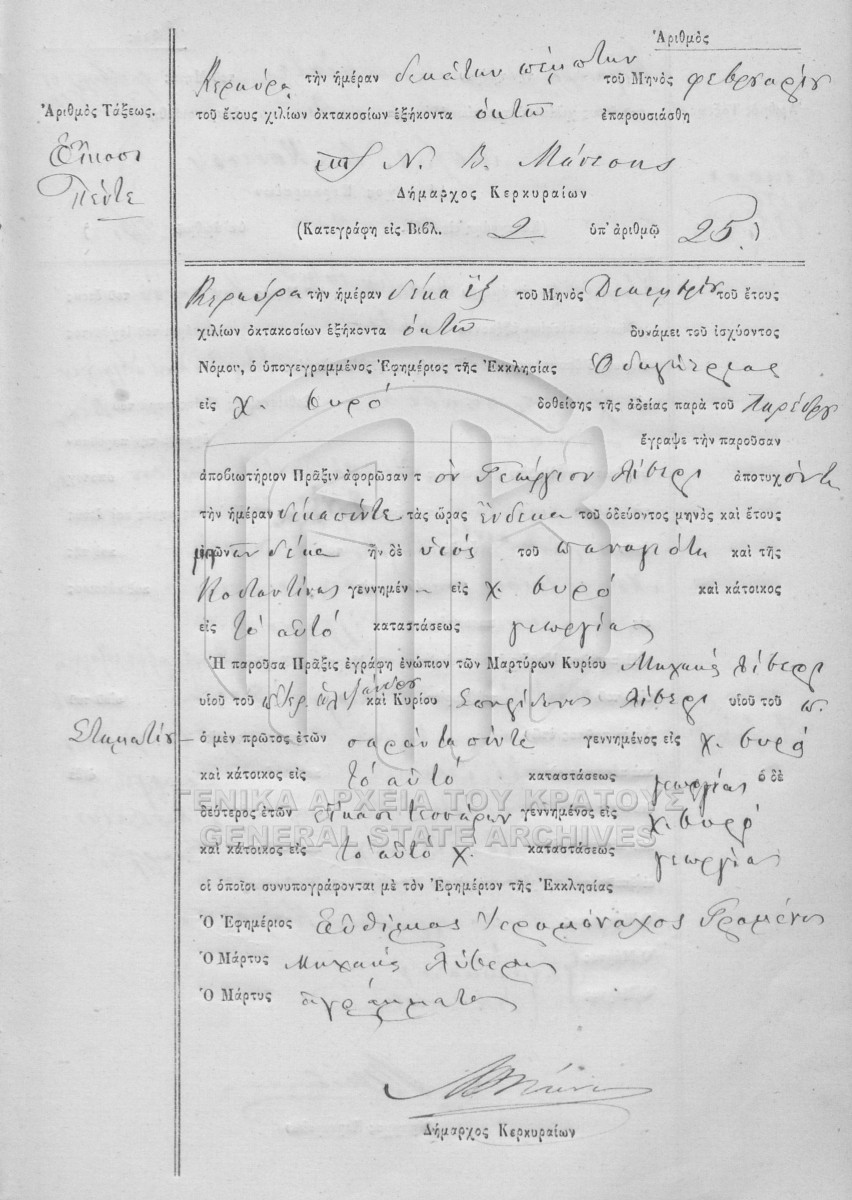 Ἀριθμὸς
Κερκύρα τὴν ἡμέραν δεκάτην πέμπτην τοῦ Μηνὸς φεβρουαρίου
Ἀριθμὸς Τάξεως.
τοῦ ἔτους χιλίων ὀκτακοσίων ἑξήκοντα ὀκτὼ ἐπαρουσιάσθη
Εἴκοσι
Πέντε
Ν. Β. Μάνεσης
Δήμαρχος Κερκυραίων
(Κατεγράφη εἰς Βιβλ. 2 ὑπ' ἀριθμῷ 25.)
Κερκύρα τὴν ἡμέραν δέκα ἓξ τοῦ Μηνὸς Δεκεμβρίου τοῦ ἔτους
χιλίων ὀκτακοσίων ἑξήκοντα ὀκτὼ δυνάμει τοῦ ἰσχύοντος
Νόμου, ὁ ὑπογεγραμμένος Ἐφημέριος τῆς Ἐκκλησίας Ὁδυγήτριας
εἰς χ. θυρό δοθείσης τῆς ἀδείας παρὰ τοῦ Παρέδρου
ἔγραψε τὴν παροῦσαν
ἀποβιωτήριον Πρᾶξιν ἀφορῶσαν τ ὸν Γεώργιον Λίβερι ἀποτυχόντα
τὴν ἡμέραν δεκαπέντε τὰς ὥρας ἕνδεκα τοῦ ὁδεύοντος μηνὸς καὶ ἔτους
μηνῶν δέκα ἦν δὲ υἱὸς τοῦ παναγιότη καὶ τῆς
Κοσταντίνας γεννημέν εἰς χ. θυρό καὶ κάτοικος
εἰς τὸ αὐτὸ καταστάσεως γεωργίας
Ἡ παροῦσα Πρᾶξις ἐγράφη ἐνώπιον τῶν Μαρτύρων Κυρίου Μηχαὴλ Λίβερι
υἱοῦ τοῦ ἀλεξάνδρου καὶ Κυρίου Σπυρίδωνος Λίβερι υἱοῦ τοῦ π.
Σταματίου – ὁ μὲν πρῶτος ἐτῶν σαράντα πέντε γεννημένος εἰς χ. θυρό
καὶ κάτοικος εἰς τὸ αὐτὸ καταστάσεως γεωργίας ὁ δὲ
ΓΕΝΙΚΑ ΑΡΧΕΙΑ ΤΟΥ ΚΡΑΤΟΥΣ
δεύτερος ἐτῶν εἴκοσι τεσσάρων γεννημένος εἰς χ. θυρό
GENERAL STATE ARCHIVES
καὶ κάτοικος εἰς τὸ αὐτὸ χ. καταστάσεως γεωργίας
οἱ ὁποῖοι συνυπογράφονται μὲ τὸν Ἐφημέριον τῆς Ἐκκλησίας
Ὁ Ἐφημέριος Εὐθίμιος Ἱερομόναχος Γραμένος
Ὁ Μάρτυς Μηχαὴλ Λίβερις
Ὁ Μάρτυς ἀγράμματος
Δήμαρχος Κερκυραίων